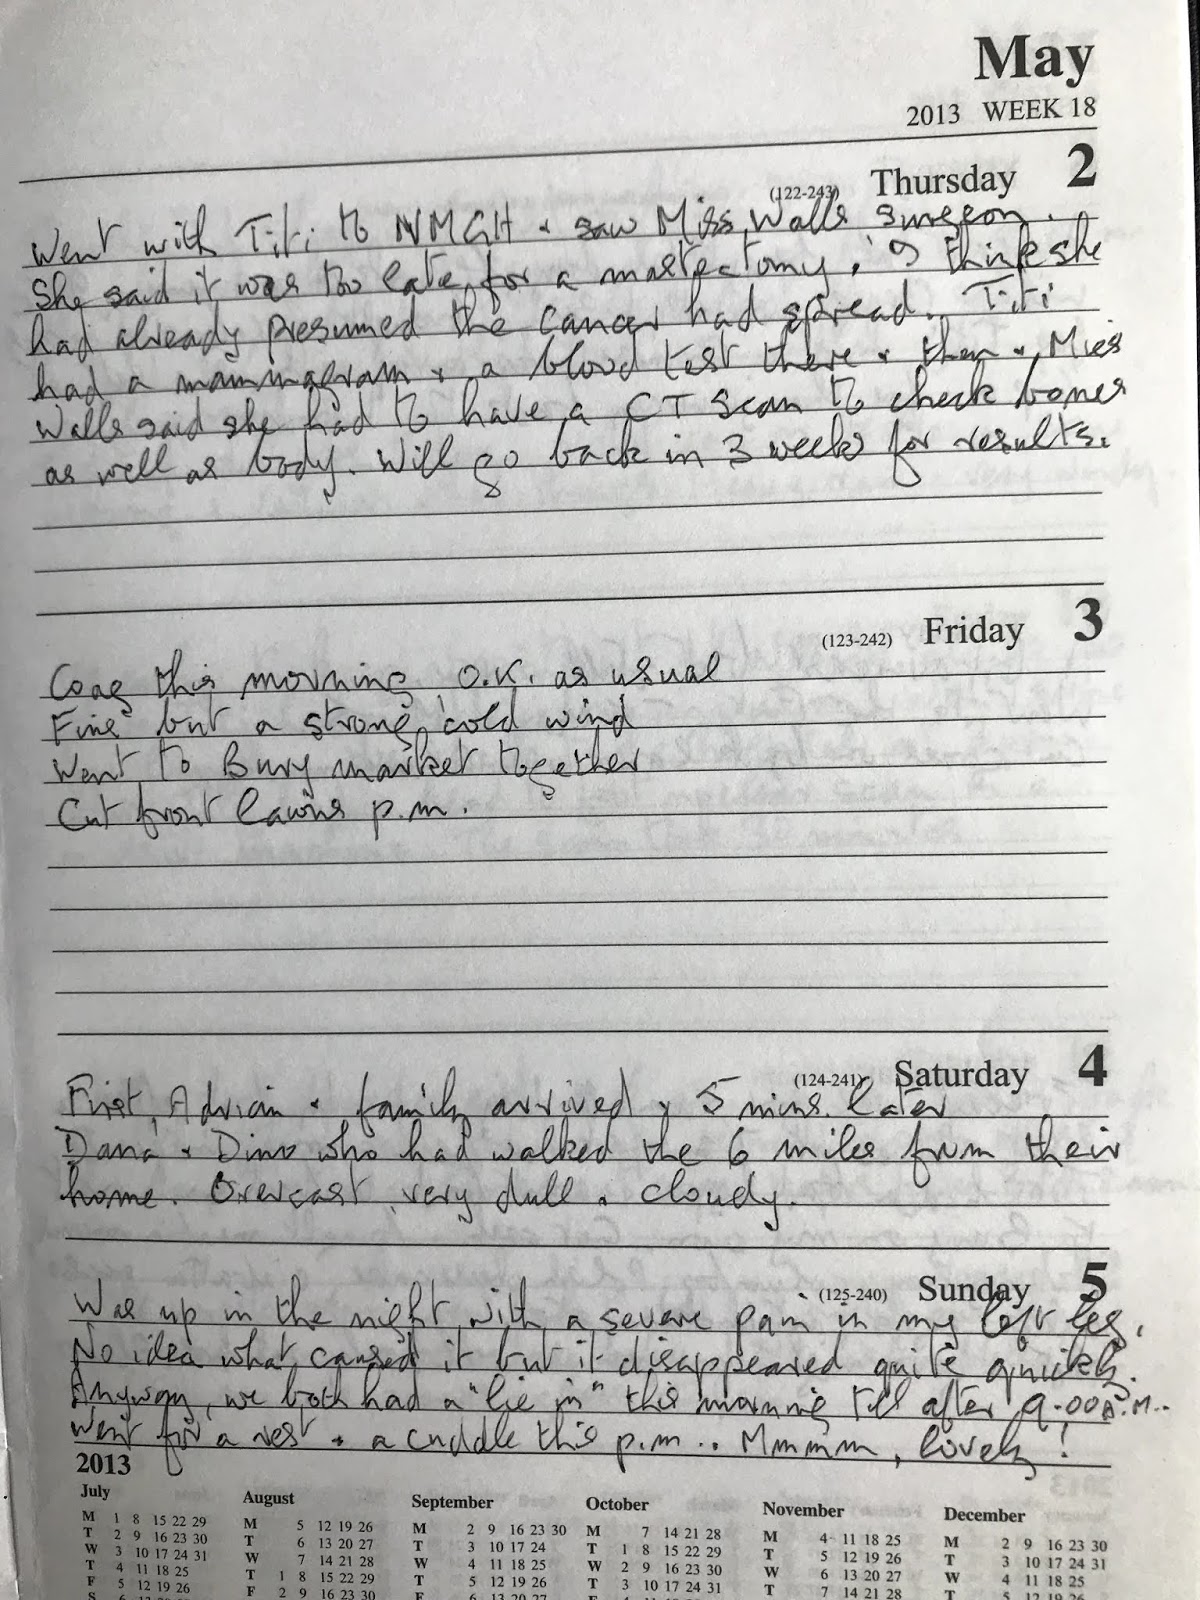 May
2013 WEEK 18
(122-243) Thursday 2
Went with Titi to NMGH & saw Miss Walls surgeon.
She said it was too late for a mastectomy, I think she
had already presumed the cancer had spread. Titi
had a mammagram & a blood test there & then &, Miss
Walls said she had to have a CT scan to check bones
as well as body. Will go back in 3 weeks for results.
(123-242) Friday 3
Coag this morning O.K. as usual
Fine but a strong, cold wind
Went to Bury market together
Cut front lawns p.m.
(124-241) Saturday 4
First, Adrian & family arrived & 5 mins. later
Dana & Dino who had walked the 6 miles from their
home. Overcast, very dull & cloudy.
(125-240) Sunday 5
Was up in the night with a severe pain in my left leg.
No idea what caused it but it disappeared quite quickly.
Anyway, we both had a "lie in" this morning till after 9.00 A.M..
Went for a rest & a cuddle this p.m... Mmmmm, lovely!
2013
July August September October November December
M 1 8 15 22 29 M 5 12 19 26 M 2 9 16 23 30 M 7 14 21 28 M 4 11 18 25 M 2 9 16 23 30
T 2 9 16 23 30 T 6 13 20 27 T 3 10 17 24 T 1 8 15 22 29 T 5 12 19 26 T 3 10 17 24 31
W 3 10 17 24 31 W 7 14 21 28 W 4 11 18 25 W 2 9 16 23 30 W 6 13 20 27 W 4 11 18 25
T 4 11 18 25 T 1 8 15 22 29 T 5 12 19 26 T 3 10 17 24 31 T 7 14 21 28 T 5 12 19 26
F 5 12 19 26 F 2 9 16 23 30 F 6 13 20 27